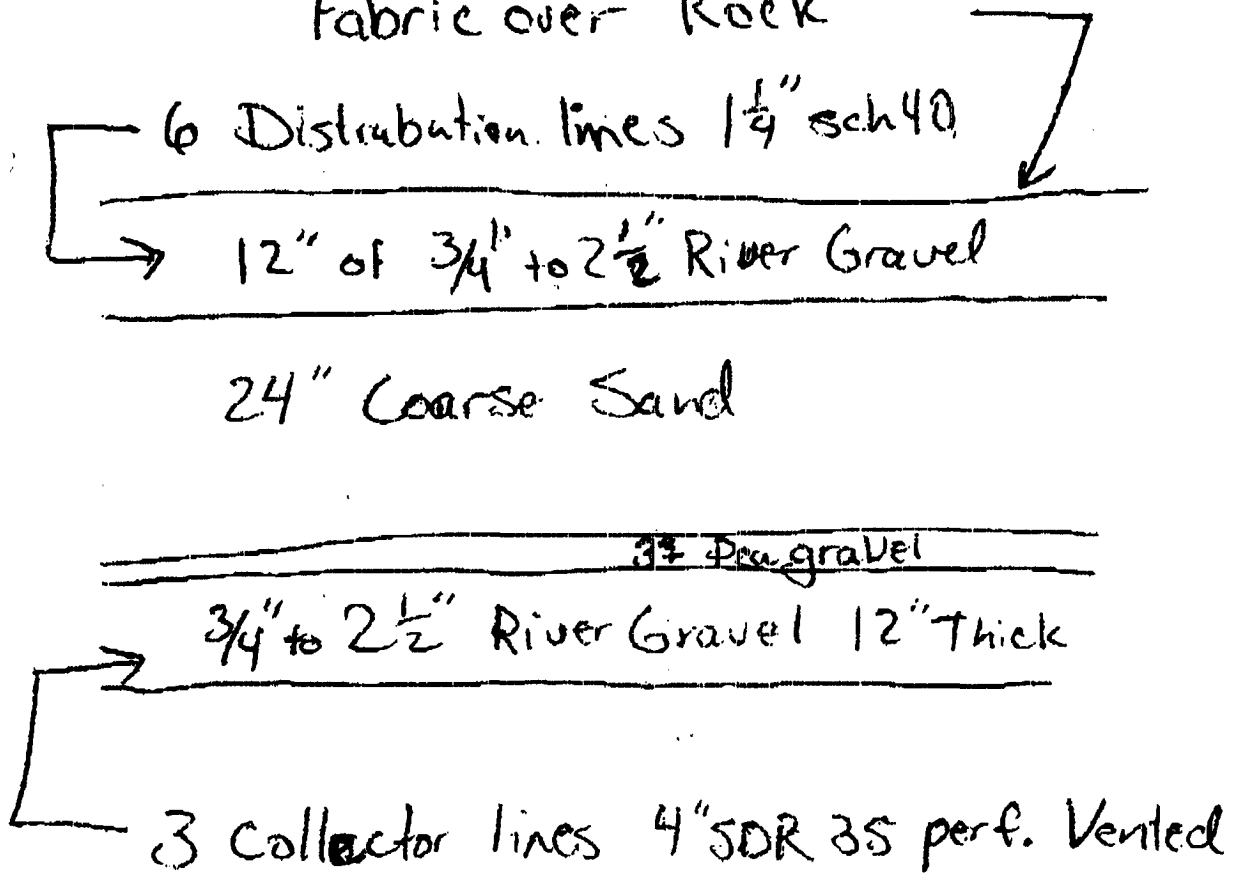 Fabric over Rock
6 Distrubution lines 1 1/4" sch 40
12" of 3/4" to 2 1/2" River Gravel
24" Coarse Sand
Pea gravel
3/4" to 2 1/2" River Gravel 12" Thick
3 Collector lines 4" SDR 35 perf. Vented